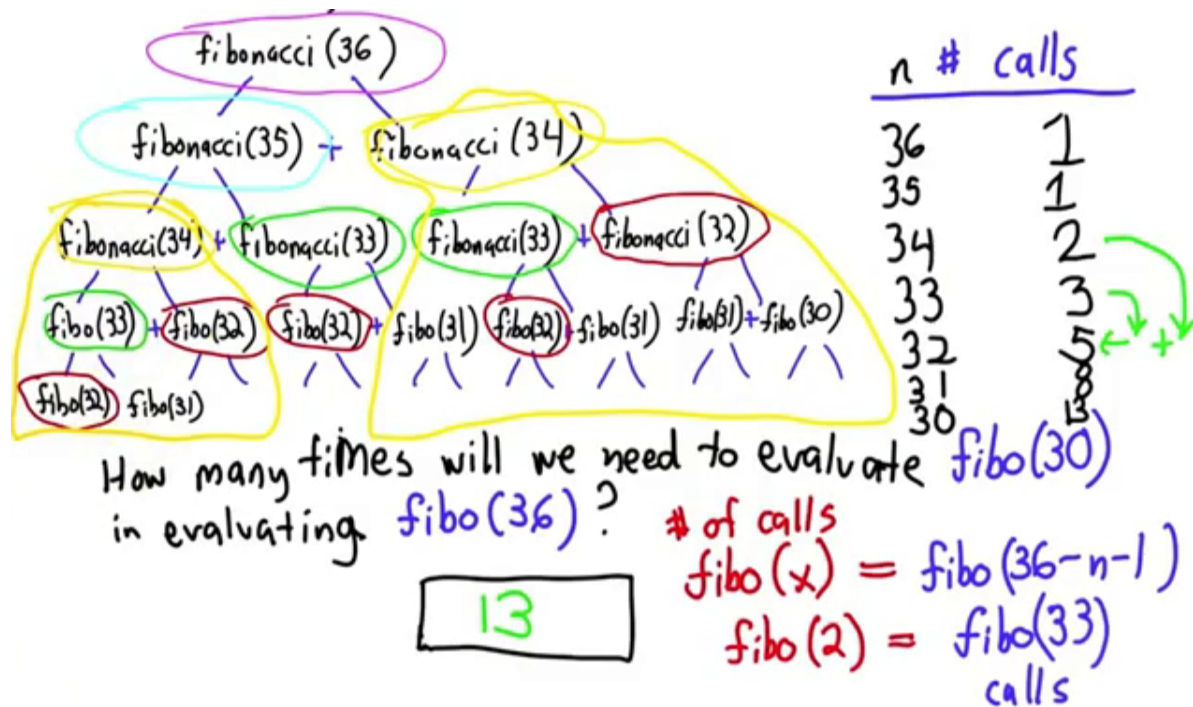 fibonacci (36)
fibonacci (35) + fibonacci (34)
fibonacci (34) + fibonacci (33) fibonacci (33) + fibonacci (32)
fibo (33) + fibo (32) fibo (32) + fibo (31) fibo (32) + fibo (31) fibo (31) + fibo (30)
fibo (32) fibo (31)
n # calls
36 1
35 1
34 2
33 3
32 5 ← +
31 8
30 13
How many times will we need to evaluate fibo (30)
in evaluating fibo (36) ?
13
# of calls
fibo (x) = fibo (36-n-1)
fibo (2) = fibo (33)
calls